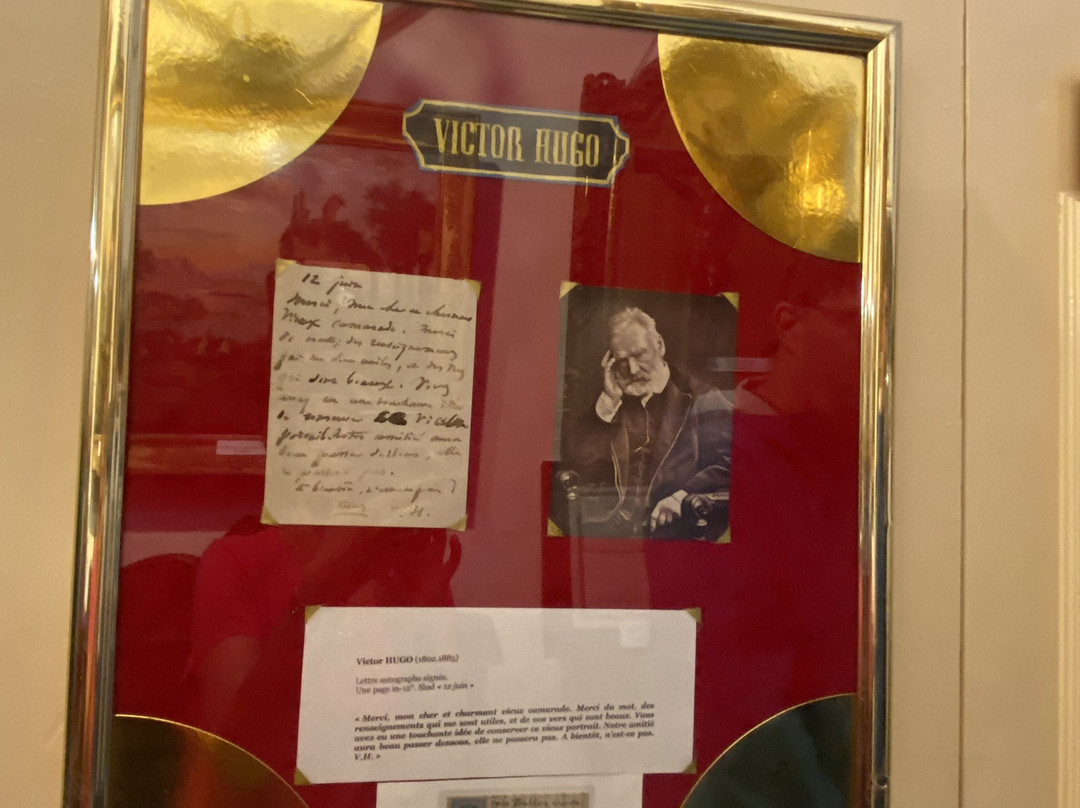 VICTOR HUGO
12 juin
Merci, mon cher et charmant
vieux camarade. Merci
du mot, des renseignements
qui me sont utiles, et de vos vers
qui sont beaux. Vous
avez eu une touchante idée
de conserver ce vieux
portrait. Notre amitié aura
beau passer dessous, elle
ne passera pas.
à bientôt, n'est-ce pas?
V.H.
Victor HUGO (1802.1885)
Lettre autographe signée.
Une page in-12°. Slnd « 12 juin »
« Merci, mon cher et charmant vieux camarade. Merci du mot, des
renseignements qui me sont utiles, et de vos vers qui sont beaux. Vous
avez eu une touchante idée de conserver ce vieux portrait. Notre amitié
aura beau passer dessous, elle ne passera pas. A bientôt, n'est-ce pas.
V.H. »